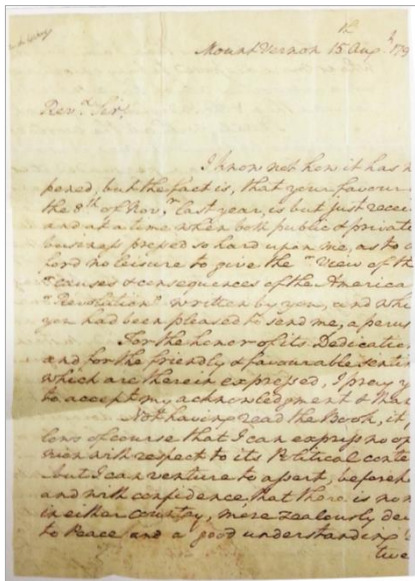 Mount Vernon 15th Aug.t 179
Rev.d Sir,
I know not how it has h
pened, but the fact is, that your favour
the 8th of Nov.r last year, is but just recei
and at a time when both public & private
business pressed so hard upon me, as to a
ford no leisure to give the "View of th
"causes & consequences of the America
"Revolution" written by you, and whi
you had been pleased to send me, a perus
For the honor of its Dedicatio
and for the friendly & favourable senti
which are therein expressed, I pray y
to accept my acknowledgment & than
Not having read the Book, it f
lows of course that I can express no op
nion with respect to its Political conte
but I can venture to assert, beforeh
and with confidence, that there is no m
in either country, more zealously de
to Peace and a good understanding b
twe